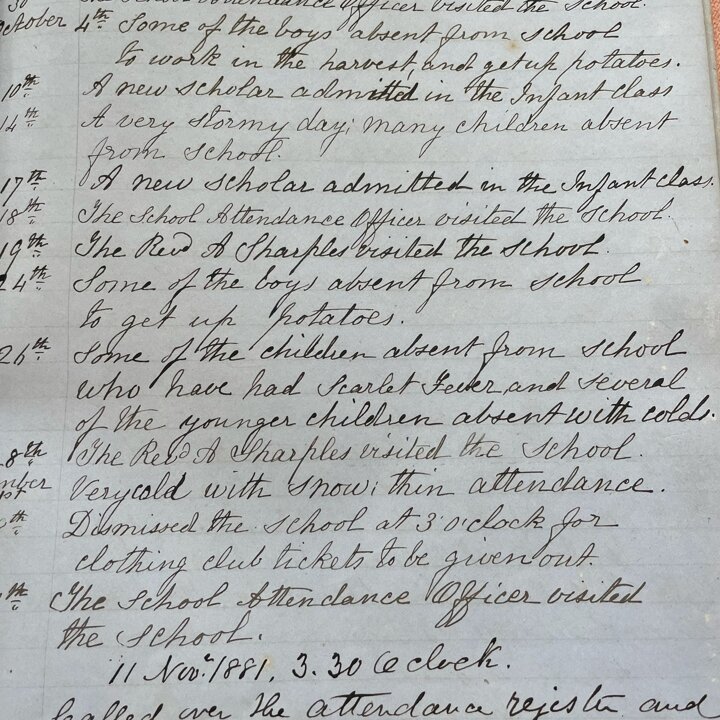 30 The School Attendance Officer visited the School.
October 4th Some of the boys absent from school
to work in the harvest, and get up potatoes.
10th A new scholar admitted in the Infant Class
14th A very stormy day; many children absent
from school.
17th A new scholar admitted in the Infant Class.
18th The School Attendance Officer visited the school.
19th The Revd A Sharples visited the school.
24th Some of the boys absent from school
to get up potatoes.
26th Some of the children absent from school
who have had Scarlet Fever, and several
of the younger children absent with cold.
8th The Revd A Sharples visited the school.
mber 1st Very cold with snow; thin attendance.
th Dismissed the school at 3 o'clock for
clothing club tickets to be given out.
th The School Attendance Officer visited
the school.
11 Novr. 1881. 3.30 O'clock.
Called over the attendance register and